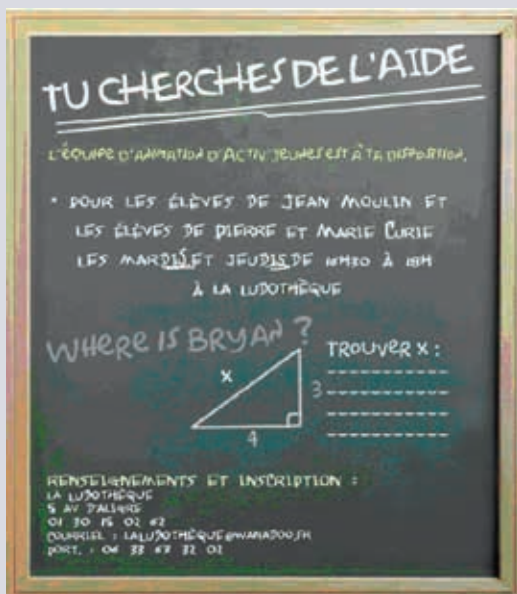 TU CHERCHES DE L'AIDE
L'ÉQUIPE D'ANIMATION D'ACTIV'JEUNES EST À TA DISPOSITION.
• POUR LES ÉLÈVES DE JEAN MOULIN ET
LES ÉLÈVES DE PIERRE ET MARIE CURIE
LES MARDIS ET JEUDIS DE 16H30 À 18H
À LA LUDOTHÈQUE
WHERE IS BRYAN ?
TROUVER X :
X
3
4
RENSEIGNEMENTS ET INSCRIPTION :
LA LUDOTHÈQUE
5 AV D'ALIGRE
01 30 15 02 62
COURRIEL : LALUDOTHÈQUE@WANADOO.FR
PORT. : 06 33 67 32 02